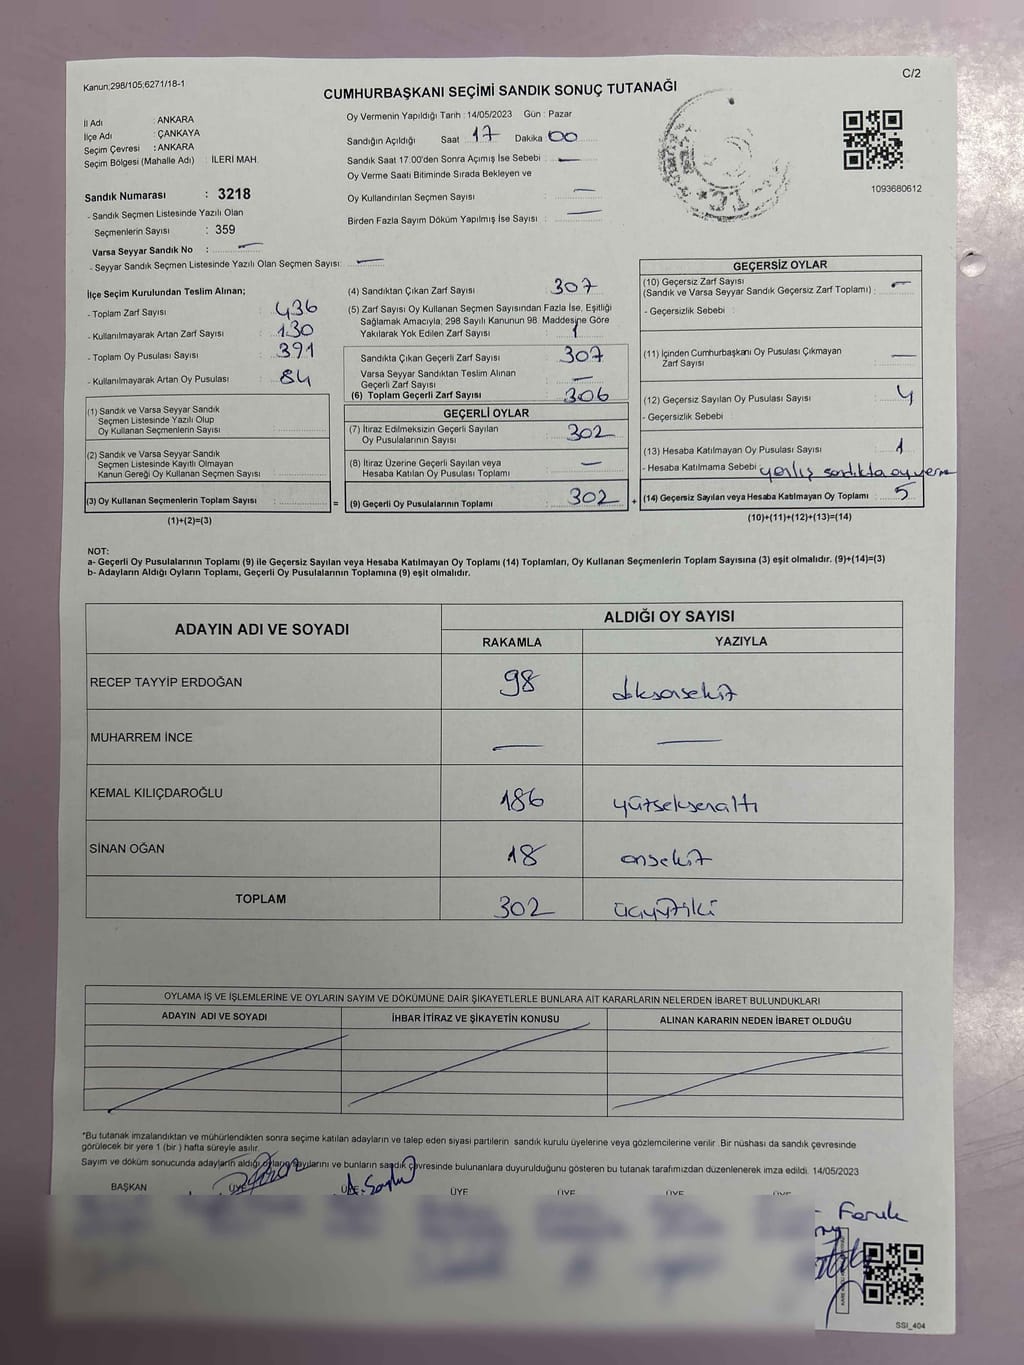 Kanun;298/105;6271/18-1
C/2
CUMHURBAŞKANI SEÇİMİ SANDIK SONUÇ TUTANAĞI
İl Adı : ANKARA
İlçe Adı : ÇANKAYA
Seçim Çevresi : ANKARA
Seçim Bölgesi (Mahalle Adı) : İLERİ MAH.
Sandık Numarası : 3218
- Sandık Seçmen Listesinde Yazılı Olan
Seçmenlerin Sayısı : 359
Varsa Seyyar Sandık No : —
- Seyyar Sandık Seçmen Listesinde Yazılı Olan Seçmen Sayısı: —
Oy Vermenin Yapıldığı Tarih : 14/05/2023 Gün : Pazar
Sandığın Açıldığı Saat 17 Dakika 00
Sandık Saat 17.00'den Sonra Açımış İse Sebebi : —
Oy Verme Saati Bitiminde Sırada Bekleyen ve
Oy Kullandırılan Seçmen Sayısı : —
Birden Fazla Sayım Döküm Yapılmış İse Sayısı : —
1093680612
İlçe Seçim Kurulundan Teslim Alınan;
- Toplam Zarf Sayısı : 436
- Kullanılmayarak Artan Zarf Sayısı : 130
- Toplam Oy Pusulası Sayısı : 391
- Kullanılmayarak Artan Oy Pusulası : 84
(1) Sandık ve Varsa Seyyar Sandık
Seçmen Listesinde Yazılı Olup
Oy Kullanan Seçmenlerin Sayısı :
(2) Sandık ve Varsa Seyyar Sandık
Seçmen Listesinde Kayıtlı Olmayan
Kanun Gereği Oy Kullanan Seçmen Sayısı :
(3) Oy Kullanan Seçmenlerin Toplam Sayısı :
(1)+(2)=(3)
(4) Sandıktan Çıkan Zarf Sayısı : 307
(5) Zarf Sayısı Oy Kullanan Seçmen Sayısından Fazla İse, Eşitliği
Sağlamak Amacıyla, 298 Sayılı Kanunun 98. Maddesine Göre
Yakılarak Yok Edilen Zarf Sayısı : 1
Sandıkta Çıkan Geçerli Zarf Sayısı : 307
Varsa Seyyar Sandıktan Teslim Alınan
Geçerli Zarf Sayısı : —
(6) Toplam Geçerli Zarf Sayısı : 306
GEÇERLİ OYLAR
(7) İtiraz Edilmeksizin Geçerli Sayılan
Oy Pusulalarının Sayısı : 302
(8) İtiraz Üzerine Geçerli Sayılan veya
Hesaba Katılan Oy Pusulası Toplamı : —
= (9) Geçerli Oy Pusulalarının Toplamı : 302 +
GEÇERSİZ OYLAR
(10) Geçersiz Zarf Sayısı
(Sandık ve Varsa Seyyar Sandık Geçersiz Zarf Toplamı) : —
- Geçersizlik Sebebi :
(11) İçinden Cumhurbaşkanı Oy Pusulası Çıkmayan
Zarf Sayısı : —
(12) Geçersiz Sayılan Oy Pusulası Sayısı : 4
- Geçersizlik Sebebi :
(13) Hesaba Katılmayan Oy Pusulası Sayısı : 1
- Hesaba Katılmama Sebebi : yanlış sandıkta oy verme
(14) Geçersiz Sayılan veya Hesaba Katılmayan Oy Toplamı : 5
(10)+(11)+(12)+(13)=(14)
NOT:
a- Geçerli Oy Pusulalarının Toplamı (9) ile Geçersiz Sayılan veya Hesaba Katılmayan Oy Toplamı (14) Toplamları, Oy Kullanan Seçmenlerin Toplam Sayısına (3) eşit olmalıdır. (9)+(14)=(3)
b- Adayların Aldığı Oyların Toplamı, Geçerli Oy Pusulalarının Toplamına (9) eşit olmalıdır.
ADAYIN ADI VE SOYADI ALDIĞI OY SAYISI
RAKAMLA YAZIYLA
RECEP TAYYİP ERDOĞAN 98 doksansekiz
MUHARREM İNCE — —
KEMAL KILIÇDAROĞLU 186 yüzseksenaltı
SİNAN OĞAN 18 onsekiz
TOPLAM 302 üçyüziki
OYLAMA İŞ VE İŞLEMLERİNE VE OYLARIN SAYIM VE DÖKÜMÜNE DAİR ŞİKAYETLERLE BUNLARA AİT KARARLARIN NELERDEN İBARET BULUNDUKLARI
ADAYIN ADI VE SOYADI İHBAR İTİRAZ VE ŞİKAYETİN KONUSU ALINAN KARARIN NEDEN İBARET OLDUĞU
*Bu tutanak imzalandıktan ve mühürlendikten sonra seçime katılan adayların ve talep eden siyasi partilerin sandık kurulu üyelerine veya gözlemcilerine verilir. Bir nüshası da sandık çevresinde
görülecek bir yere 1 (bir) hafta süreyle asılır.
Sayım ve döküm sonucunda adayların aldığı oyların sayılarını ve bunların sandık çevresinde bulunanlara duyurulduğunu gösteren bu tutanak tarafımızdan düzenlenerek imza edildi. 14/05/2023
BAŞKAN ÜYE ÜYE ÜYE ÜYE ÜYE ÜYE
Faruk
SSI_404